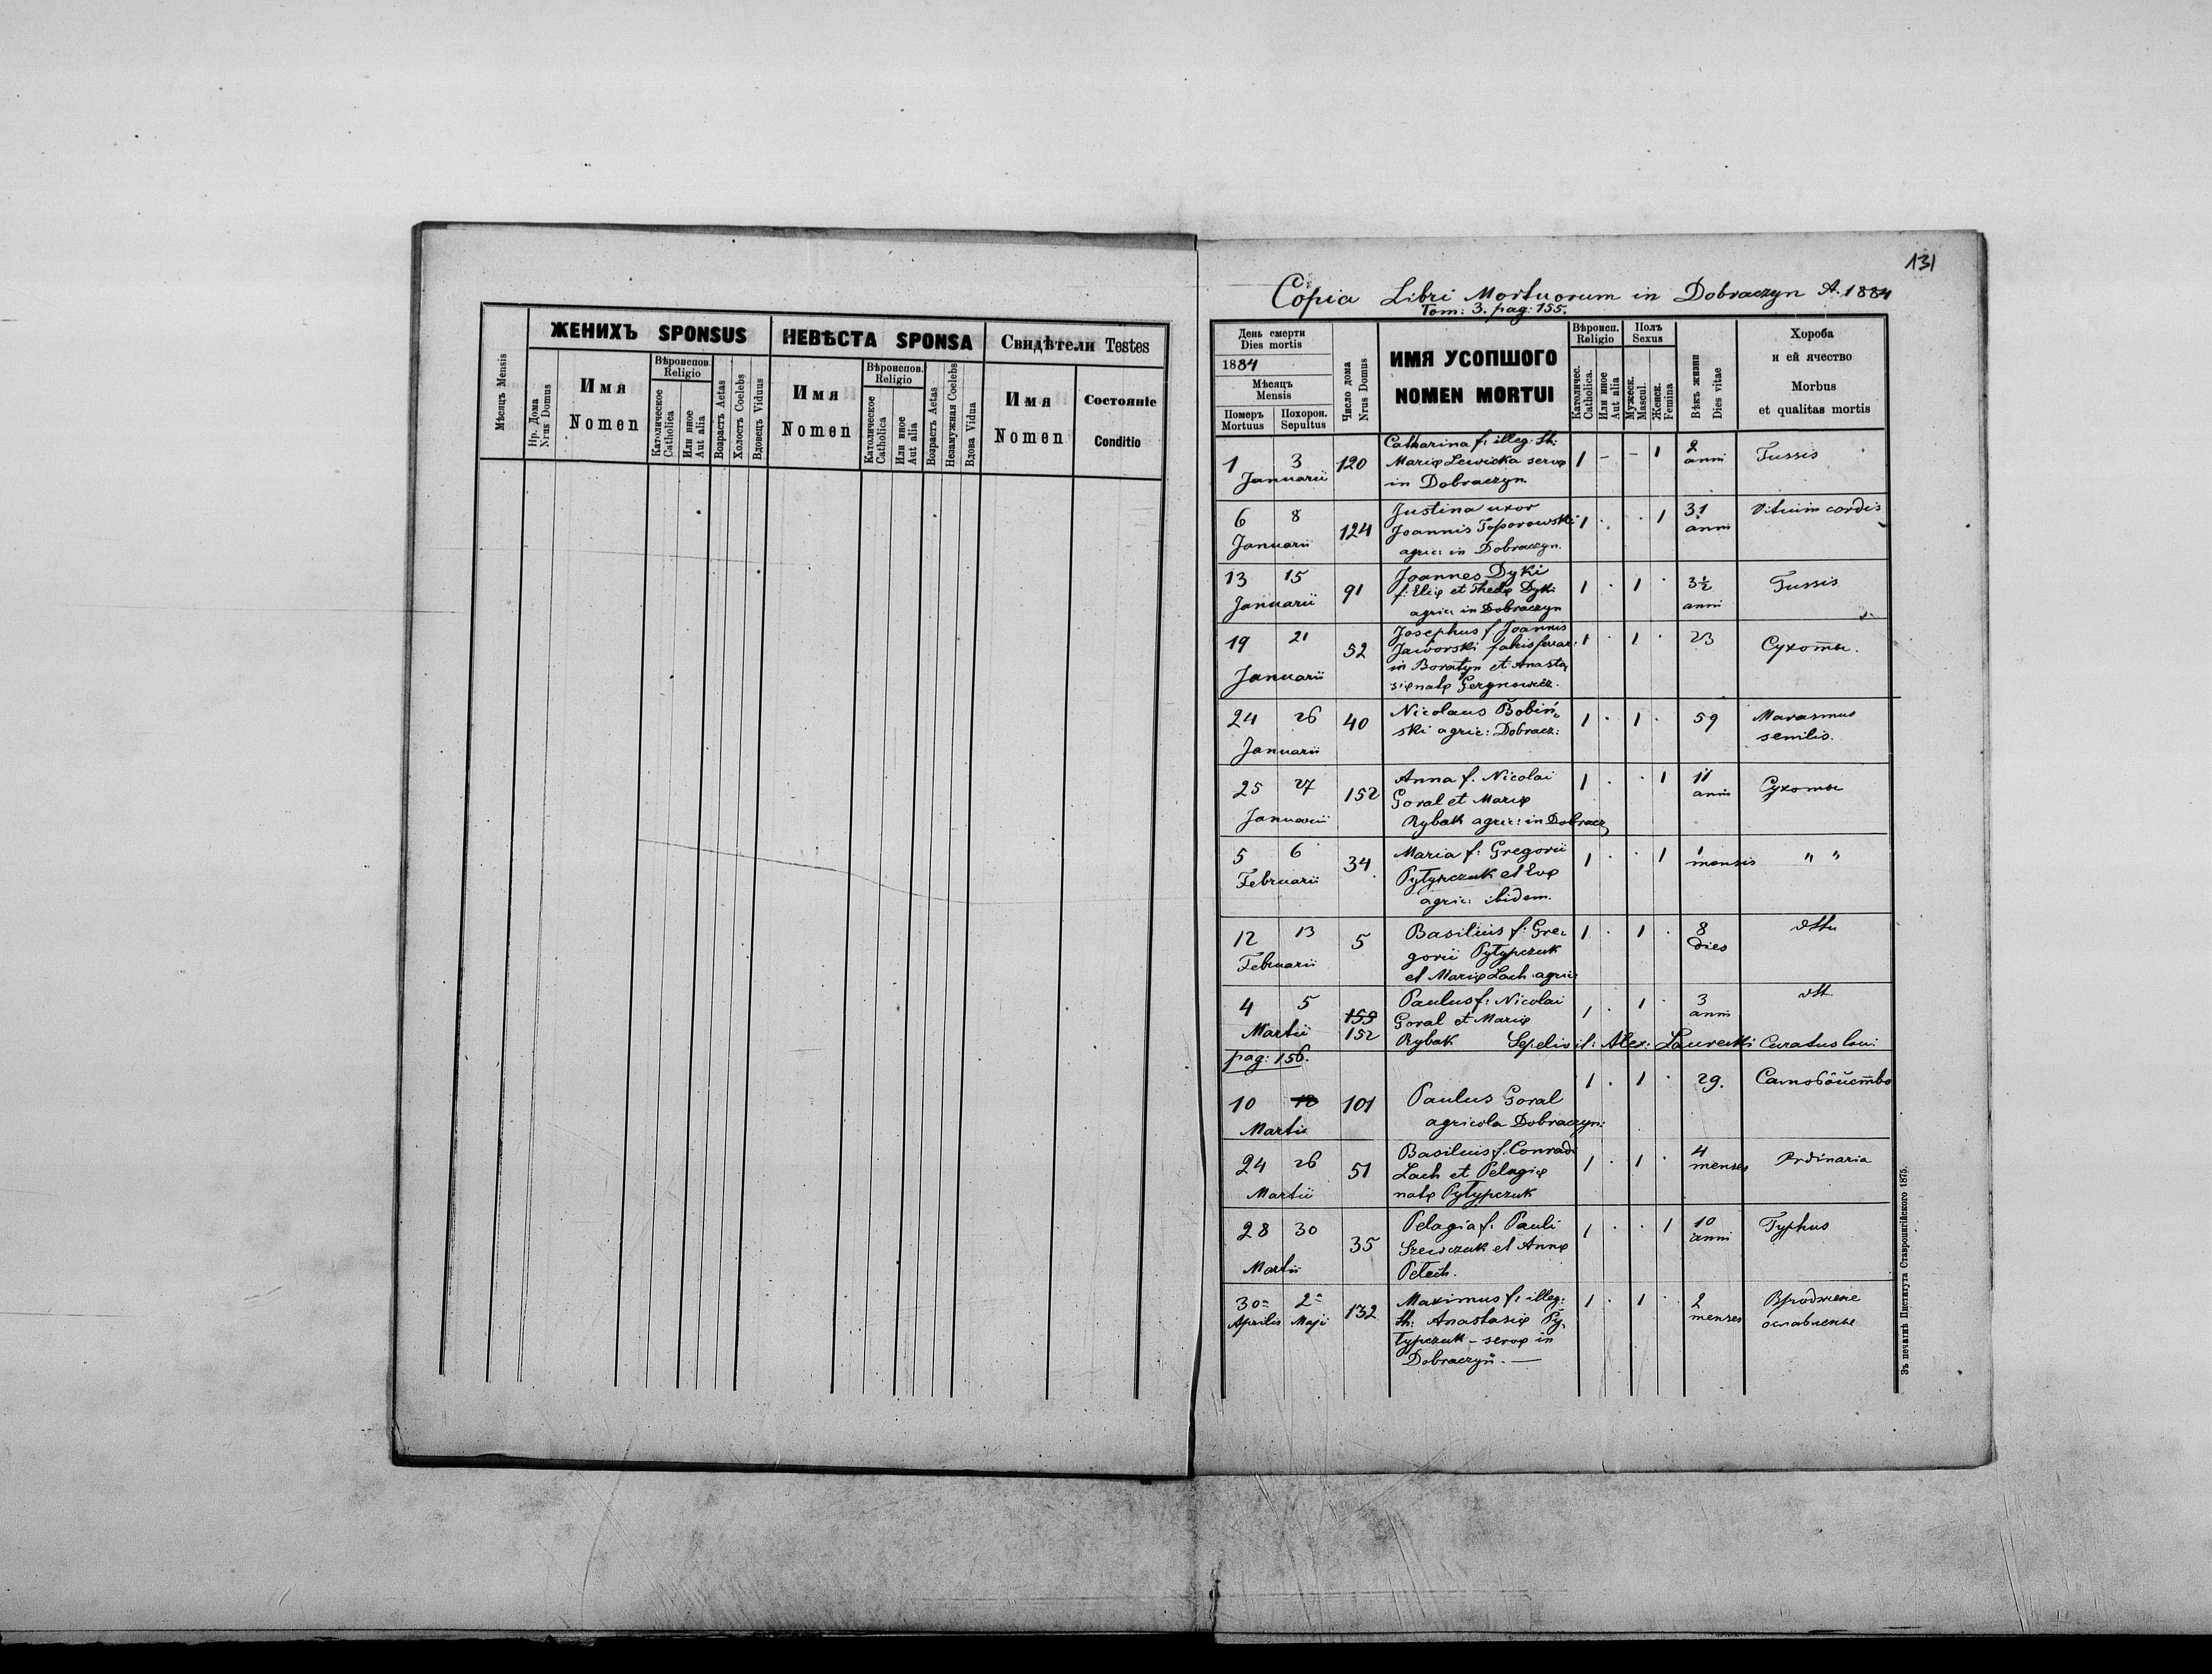 ЖЕНИХЪ SPONSUS
НЕВѢСТА SPONSA
Свидѣтели Testes
Мѣсяцъ Mensis
Нр. Дома
Nrus Domus
Имя
Nomen
Вѣроиспов.
Religio
Католическое
Catholica
Или иное
Aut alia
Возрастъ Aetas
Холостъ Coelebs
Вдовецъ Viduus
Имя
Nomen
Вѣроиспов.
Religio
Католическое
Catholica
Или иное
Aut alia
Возрастъ Aetas
Незамужная Coelebs
Вдова Vidua
Имя
Nomen
Состояніе
Conditio
131
Copia Libri Mortuorum in Dobraczyn A. 1884
Tom: 3. pag: 155.
День смерти
Dies mortis
1884
Мѣсяцъ
Mensis
Померъ
Mortuus
Похорон.
Sepultus
Число дома
Nrus Domus
ИМЯ УСОПШОГО
NOMEN MORTUI
Вѣроисп.
Religio
Католичес.
Catholica.
Или иное
Aut alia
Полъ
Sexus
Мужеск.
Mascul.
Женск.
Femina
Вѣкъ жизни
Dies vitae
Хороба
и ей ячество
Morbus
et qualitas mortis
1 3 120 Catharina f: illeg: th: 1 - - 1 2 Tussis
Januarii Mariæ Lewicka servæ anni
in Dobraczyn.
6 8 124 Justina uxor 1 . . 1 31 Vitium cordis
Januarii Joannis Toporowski anni
agric: in Dobraczyn.
13 15 91 Joannes Dyki 1 . 1 . 3½ Tussis
Januarii f. Eliæ et Theclæ Dyki anni
agric: in Dobraczyn
19 21 52 Josephus f. Joannis 1 . 1 . 23 Сухоты.
Januarii Jaworski
in Boratyn et Anasta
siæ natæ Gergnowicz.
24 26 40 Nicolaus Bobiń„ 1 . 1 . 59 Marasmus
Januarii ski agric: Dobracz: senilis.
25 27 152 Anna f. Nicolai 1 . . 1 11 Сухоты
Januarii Goral et Mariæ anni
Rybak agric: in Dobracz
5 6 34 Maria f: Gregorii 1 . . 1 1 " "
Februarii Pytypczuk et Evæ mensis
agric: ibidem.
12 13 5 Basilius f: Gre: 1 . 1 . 8 dtto
Februarii gorii Pytypczuk dies
et Mariæ Lach agric:
4 5 155 Paulus f: Nicolai 1 . 1 . 3 dtt.
Martii 152 Goral et Mariæ anni
Rybak Sepelivit: Alex: Laurecki Curatus loci
pag: 156.
10 12 101 Paulus Goral 1 . 1 . 29. Самобойство
Martii agricola Dobraczyn:
24 26 51 Basilius f. Conradi 1 . 1 . 4 Ordinaria
Martii Lach et Pelagiæ menses
natæ Pytypczuk
28 30 35 Pelagia f. Pauli 1 . . 1 10 Typhus
Martii Szewczuk et Annæ anni
Petech.
30 2 132 Maximus f: illeg: 1 . 1 . 2 Вроджене
Aprilis Maji th: Anastasiæ Py„ menses ославленье
typczuk - servæ in
Dobraczyn. —
Зъ печатнѣ Института Ставропигійского 1875.